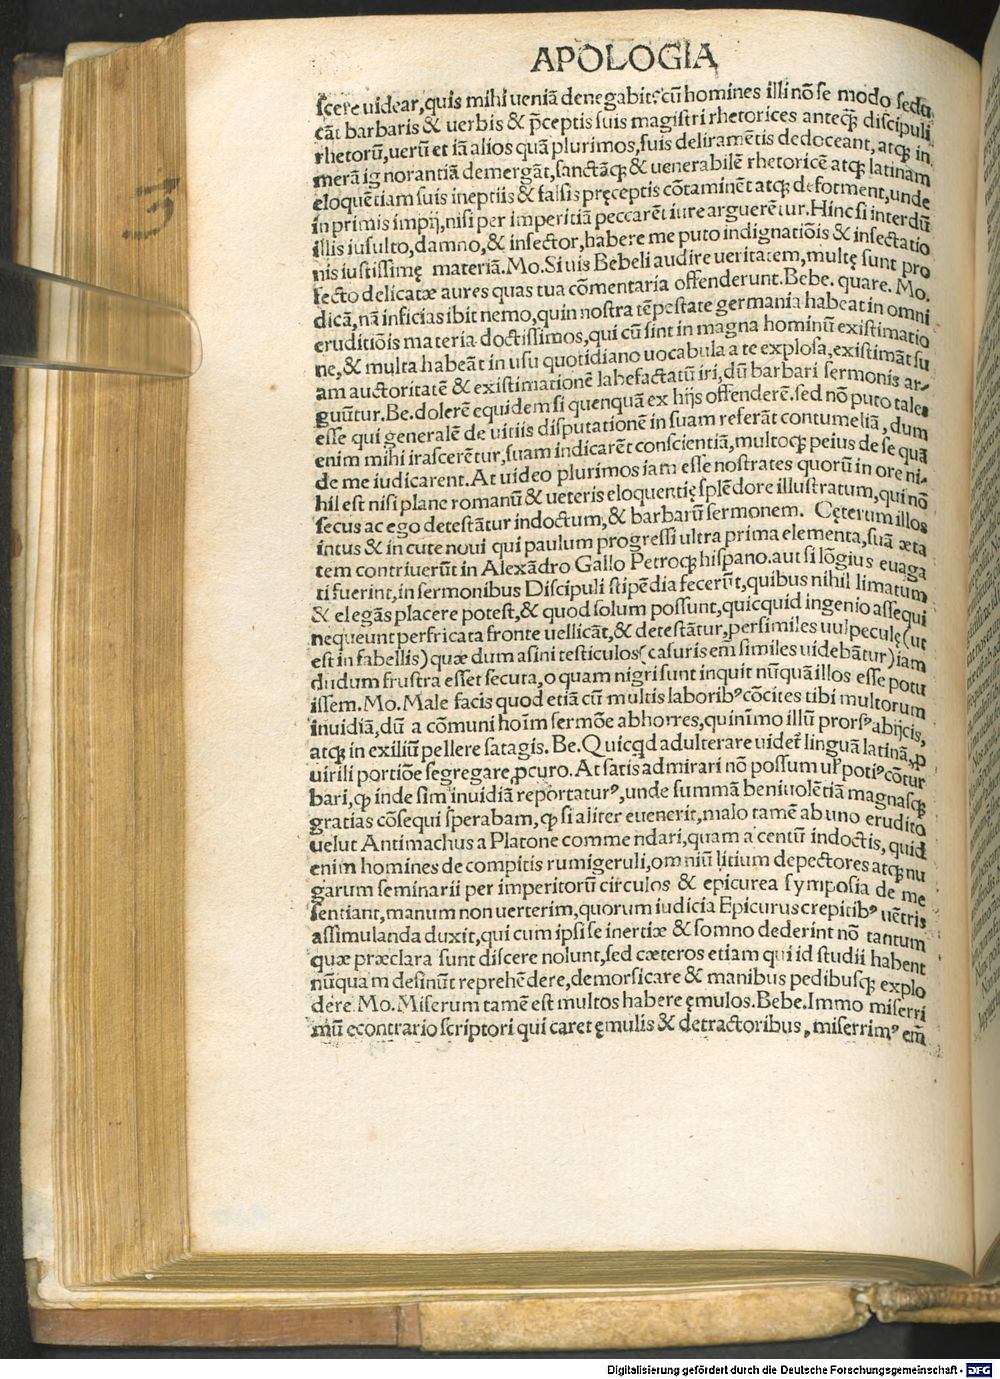 APOLOGIA
scere uidear, quis mihi ueniã denegabit? cũ homines illi nõ se modo sedu
cãt barbaris & uerbis & p̃ceptis suis magistri rhetorices anteq̃ discipuli
rhetorũ, uerũ et iã alios quã plurimos, suis deliramẽtis dedoceant, atqꝫ in
merã ignorantiã demergãt, sanctãqꝫ & uenerabilẽ rhetoricẽ atqꝫ latinam
eloquẽtiam suis ineptiis & falsis pręceptis cõtaminẽt atqꝫ deforment, unde
in primis impij, nisi per imperitiã peccarẽt iure arguerẽtur. Hinc si interdũ
illis iusulto, damno, & insector, habere me puto indignatiõis & insectatio
nis iustissimę materiã. Mo. Si uis Bebeli audire ueritatem, multę sunt pro
fecto delicatæ aures quas tua cõmentaria offenderunt. Bebe. quare. Mo.
dicã, nã inficias ibit nemo, quin nostra tẽpestate germania habeat in omni
eruditiõis materia doctissimos, qui cũ sint in magna hominũ existimatio
ne, & multa habeãt in usu quotidiano uocabula a te explosa, existimãt su
am auctoritatẽ & existimationẽ labefactatũ iri, dũ barbari sermonis ar-
guũtur. Be. dolerẽ equidem si quenquã ex hijs offenderẽ. sed nõ puto tales
esse qui generalẽ de uitiis disputationẽ in suam referãt contumeliã, dum
enim mihi irascerẽtur, suam indicarẽt conscientiã, multoqꝫ peius de se quã
de me iudicarent. At uideo plurimos iam esse nostrates quorũ in ore ni-
hil est nisi plane romanũ & ueteris eloquentię splẽdore illustratum, qui nõ
secus ac ego detestãtur indoctum, & barbarũ sermonem. Cęterum illos
intus & in cute noui qui paulum progressi ultra prima elementa, suã æta
tem contriuerũt in Alexãdro Gallo Petroqꝫ hispano. aut si lõgius euaga
ti fuerint, in sermonibus Discipuli stipẽdia fecerũt, quibus nihil limatum
& elegãs placere potest, & quod solum possunt, quicquid ingenio assequi
nequeunt perfricata fronte uellicãt, & detestãtur, persimiles uulpeculę (ut
est in fabellis) quæ dum asini testiculos (casuris em̃ similes uidebãtur) iam
dudum frustra esset secuta, o quam nigri sunt inquit nũquã illos esse potu
issem. Mo. Male facis quod etiã cũ multis laboribꝰ cõcites tibi multorum
inuidiã, dũ a cõmuni hoim̃ sermõe abhorres, quinimo illũ prorsꝰ abijcis,
atqꝫ in exiliũ pellere satagis. Be. Quicqd adulterare uidet̃ linguã latinã, ꝓ
uirili portiõe segregare ꝓcuro. At satis admirari nõ possum ul̃ potiꝰ cõtur
bari, ꝙ inde sim inuidiã reportaturꝰ, unde summã beniuolẽtiã magnasqꝫ
gratias cõsequi sperabam, ꝙ si aliter euenerit, malo tamẽ ab uno erudito
uelut Antimachus a Platone comme ndari, quam a centũ indoctis, quid
enim homines de compitis rumigeruli, omniũ litium depectores atqꝫ nu
garum seminarii per imperitorũ circulos & epicurea symposia de me
sentiant, manum non uerterim, quorum iudicia Epicurus crepitibꝰ uẽtris
assimulanda duxit, qui cum ipsi se inertiæ & somno dederint nõ tantum
quæ præclara sunt discere nolunt, sed cæteros etiam qui id studii habent
nũqua m desinũt reprehẽdere, demorsicare & manibus pedibusqꝫ explo
dere. Mo. Miserum tamẽ est multos habere ęmulos. Bebe. Immo miserri
mũ econtrario scriptori qui caret ęmulis & detractoribus, miserrimꝰ em̃
Digitalisierung gefördert durch die Deutsche Forschungsgemeinschaft - DFG